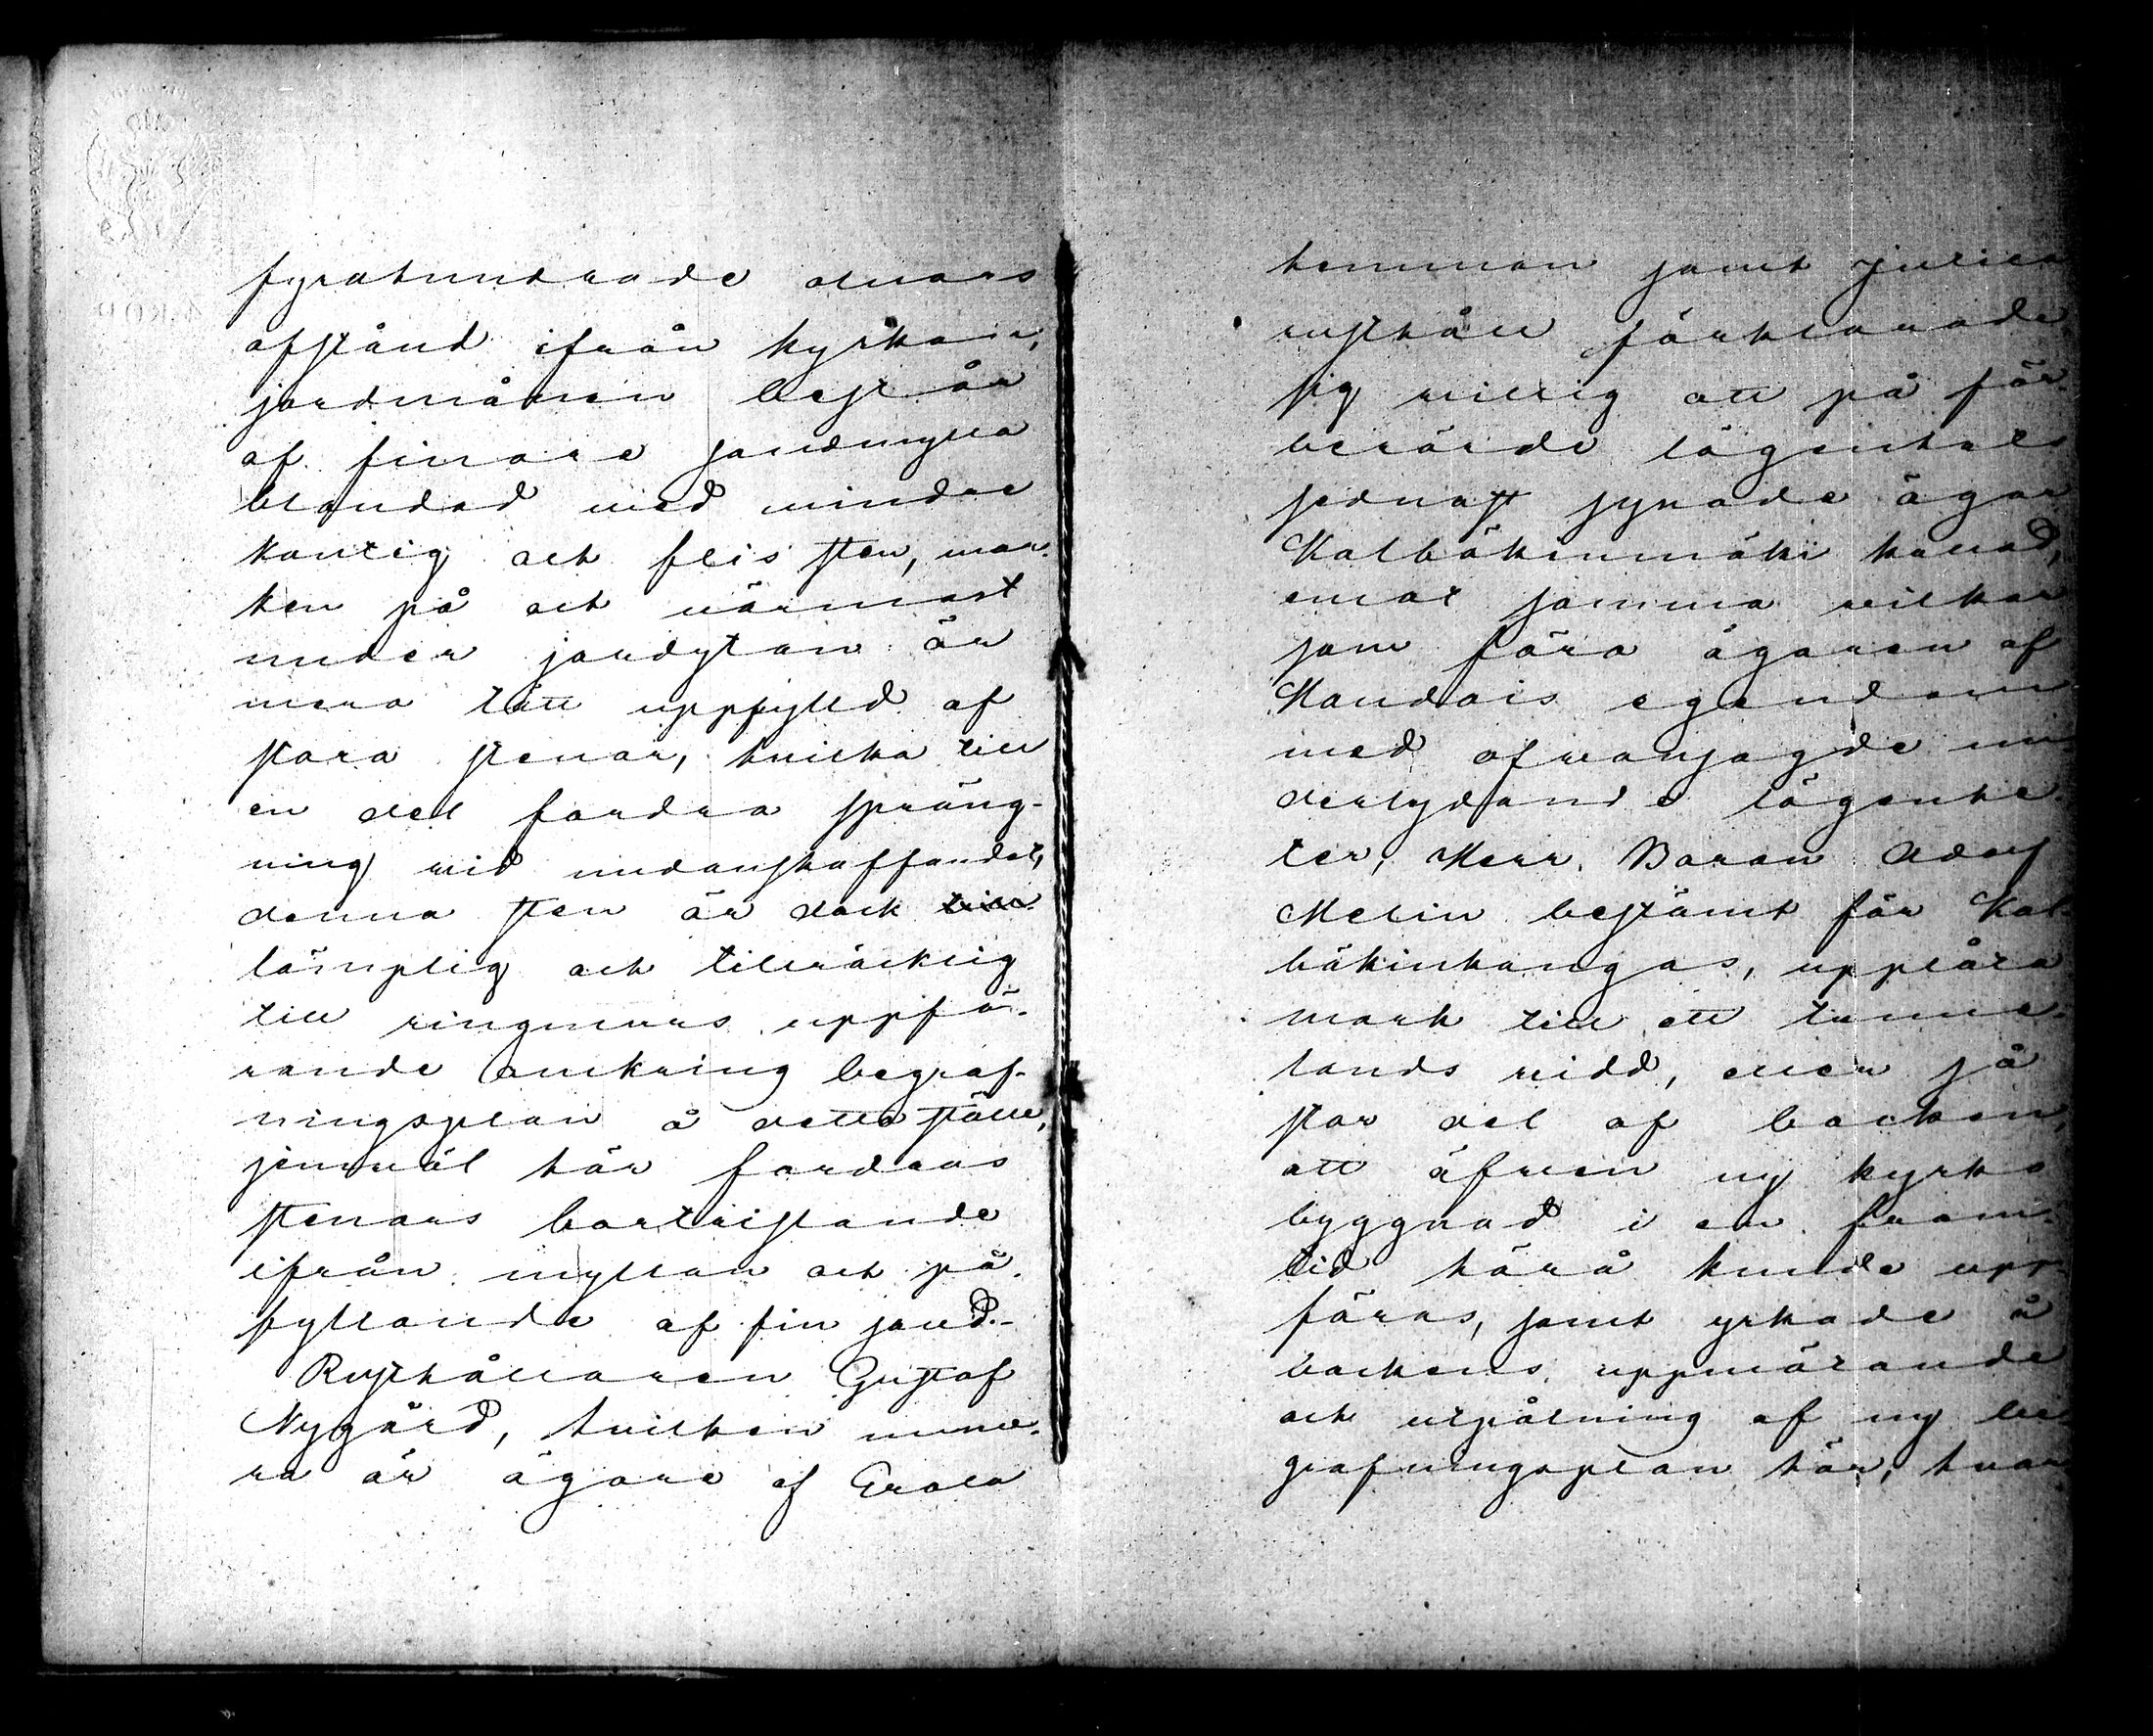 fyrahundrade alnars
afstånd ifrån kyrkan,
jordmånen består
af finare sandmylla
blandad med mindre
kantig och flis sten, mar-
ken på och närmast
under jordytan är
mera tätt uppfylld af
stora stenar, hvilka till
en del fordra spräng-
ning vid undanskaffandet,
denna sten är dock
lämplig och tillräcklig
till ringmurs uppfö-
rande omkring begraf-
ningsplan å detta ställe,
jemväl här fordras
stenars bortristande
ifrån myllan och på-
fyllande af fin sand.-
Rusthållaren Gustaf
Nygård, hvilken nume-
ra är ägare af Erola
hemman samt
rusthåll förklarade
sig villig att på för-
berörde lägenhets
sednast synade ägor
Kalbäkinmäki kallad,
emot samma vilkor
som förra ägaren af
Kandois egendom
med ofvansagde un-
derlydande lägenhe-
ter, Herr Baron Adolf
Mellin bestämt för Kal-
bäkinkangas, upplåta
mark till ett tunne-
lands vidd, eller så
stor del af backen,
att äfven ny kyrko
byggnad i en fram-
tid härå kunde upp-
föras, samt yrkade å
backens uppmätande
och utpålning af ny be-
grafningsplan här, hvar